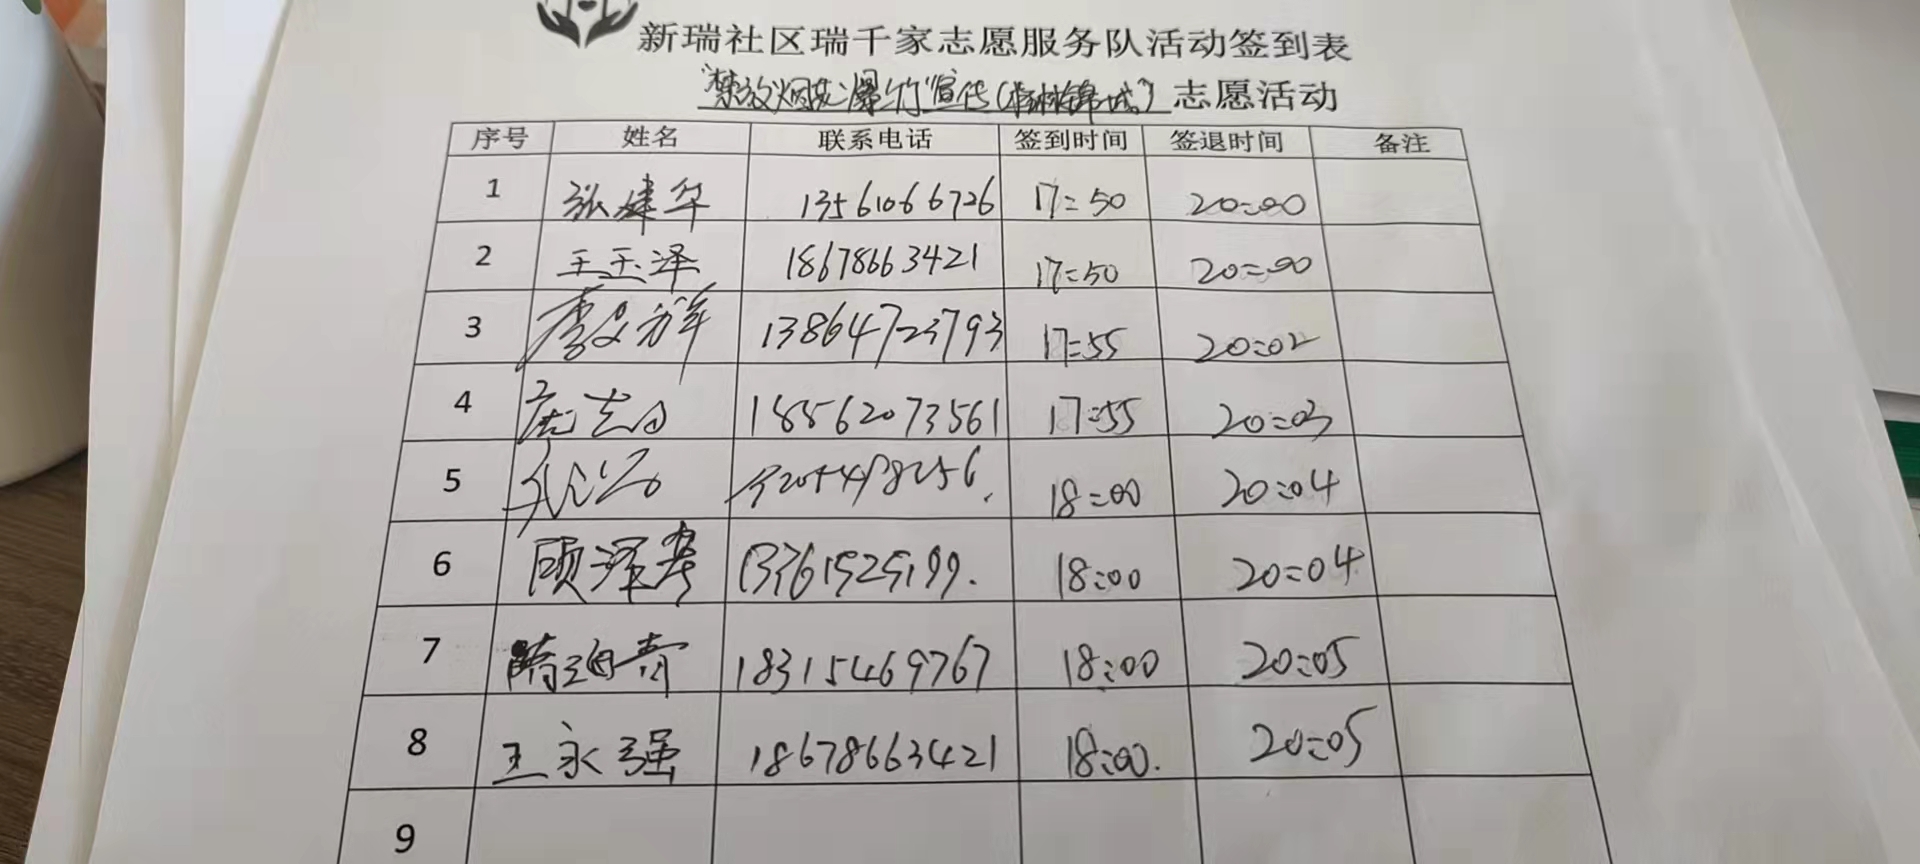 新瑞社区瑞千家志愿服务队活动签到表
"禁放烟花爆竹"宣传(桂林锦城) 志愿活动
序号 姓名 联系电话 签到时间 签退时间 备注
1 张建华 13561066726 17:50 20:00
2 王玉泽 18678663421 17:50 20:00
3 李文祥 13864723793 17:55 20:02
4 18562073561 17:55 20:03
5 18:00 20:04
6 顾泽孝 18:00 20:04
7 18315469767 18:00 20:05
8 王永强 18678663421 18:00. 20:05
9